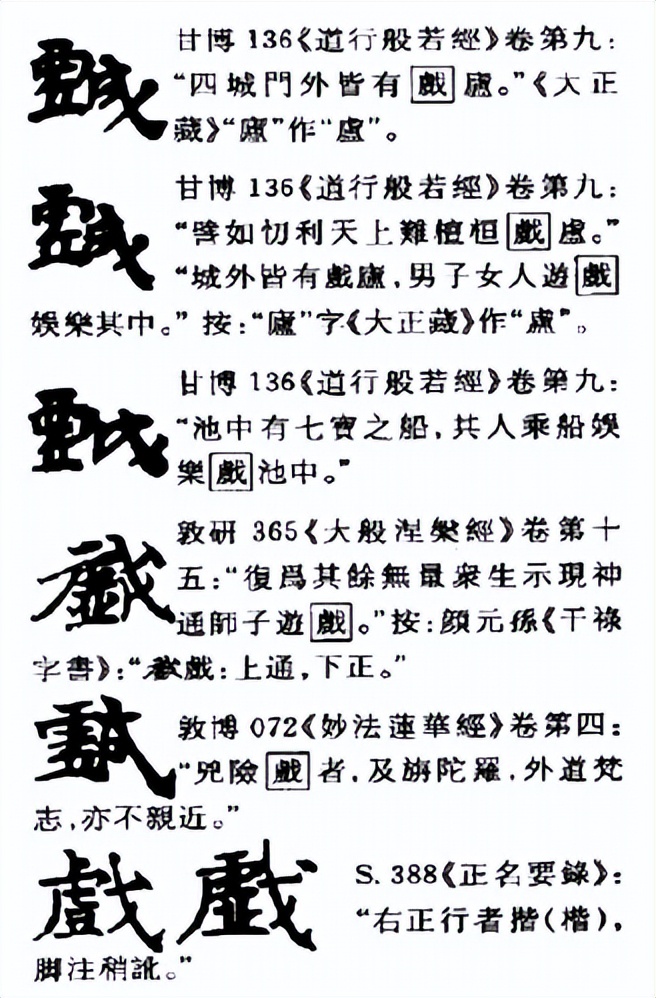 甘博 136《道行般若經》卷第九：
“四城門外皆有戲廬。”《大正
藏》“廬”作“盧”。
甘博 136《道行般若經》卷第九：
“譬如忉利天上難檀桓戲盧。”
“城外皆有戲廬，男子女人遊戲
娛樂其中。”按：“廬”字《大正藏》作“盧”。
甘博 136《道行般若經》卷第九：
“池中有七寶之船，共人乘船娛
樂戲池中。”
敦研 365《大般涅槃經》卷第十
五：“復爲其餘無量衆生示現神
通師子遊戲。”按：顔元孫《干祿
字書》：“戲：上通，下正。”
敦博 072《妙法蓮華經》卷第四：
“兇險戲者，及旃陀羅，外道梵
志，亦不親近。”
戲 戯 S. 388《正名要錄》：
“右正行者揩（楷），
脚注稍訛。”